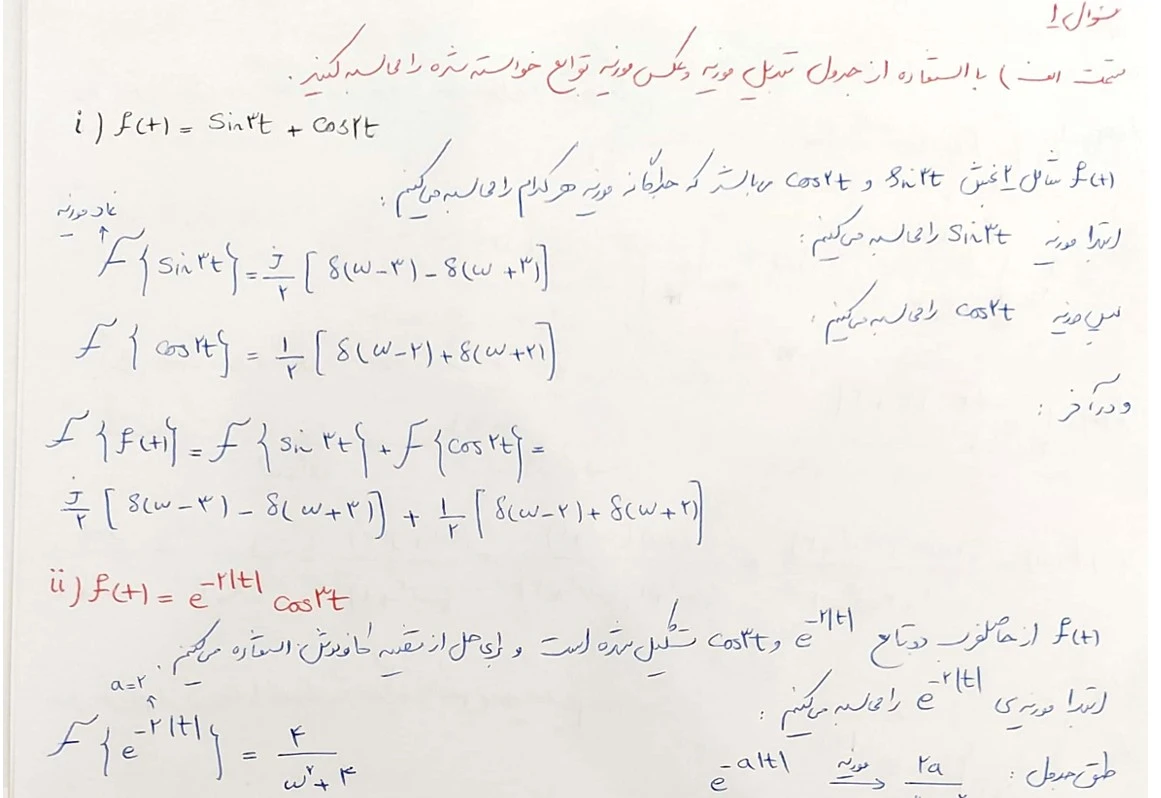 سوال ۱
قسمت الف) با استفاده از جدول تبدیل فوریه و عکس فوریه توابع خواسته شده را محاسبه کنید.
i) f(t) = Sin۳t + Cos۲t
f(t) شامل ۲ بخش Sin۳t و Cos۲t می‌باشد که جداگانه فوریه هر کدام را محاسبه می‌کنیم:
نماد فوریه
ابتدا فوریه Sin۳t را محاسبه می‌کنیم:
F{Sin۳t} = j/۲ [δ(ω-۳) - δ(ω+۳)]
سپس فوریه Cos۲t را محاسبه می‌کنیم:
F{cos۲t} = ۱/۲ [δ(ω-۲) + δ(ω+۲)]
و در آخر:
F{f(t)} = F{sin۳t} + F{cos۲t} =
j/۲ [δ(ω-۳) - δ(ω+۳)] + ۱/۲ [δ(ω-۲) + δ(ω+۲)]
ii) f(t) = e^-۲|t| Cos۳t
f(t) از حاصلضرب دو تابع e^-۲|t| و Cos۳t تشکیل شده است و برای حل از قضیه کانولوشن استفاده می‌کنیم.
a=۲
ابتدا فوریه‌ی e^-۲|t| را محاسبه می‌کنیم:
F{e^-۲|t|} = ۴/(ω^۲+۴)
طبق جدول: e^-a|t| فوریه → ۲a